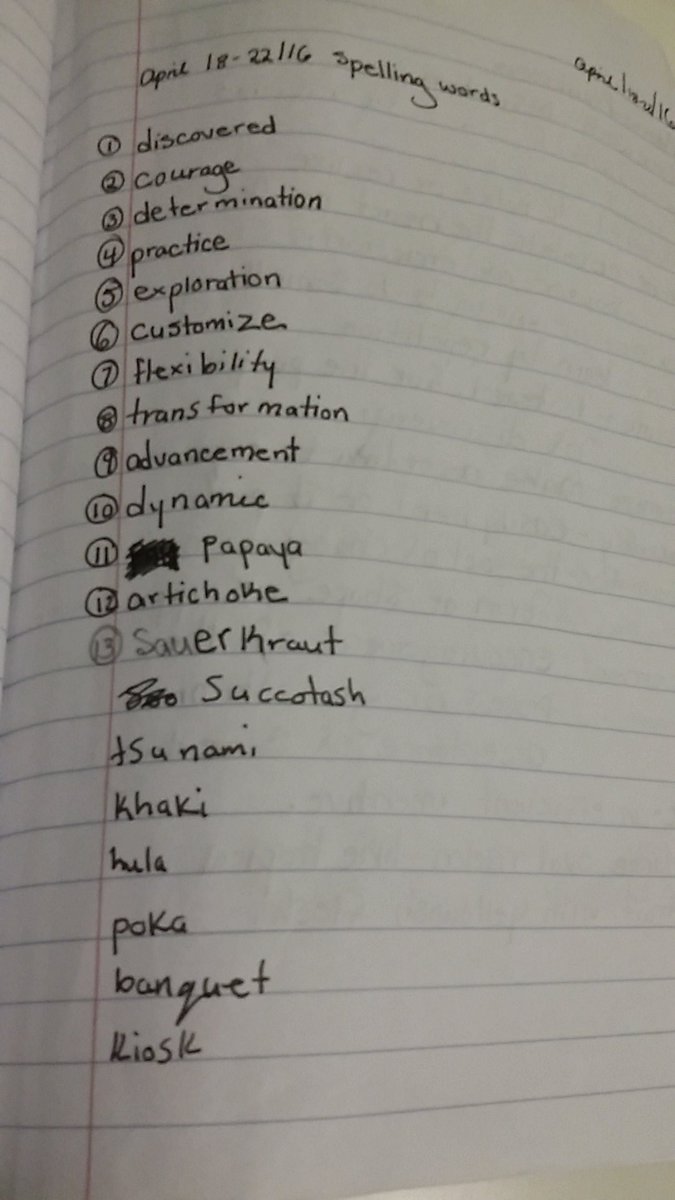 April 18-22/16 Spelling words
① discovered
② courage
③ determination
④ practice
⑤ exploration
⑥ customize
⑦ flexibility
⑧ transformation
⑨ advancement
⑩ dynamic
⑪ Papaya
⑫ artichoke
⑬ SauerKraut
Succotash
tsunami
Khaki
hula
poKa
banquet
KiosK